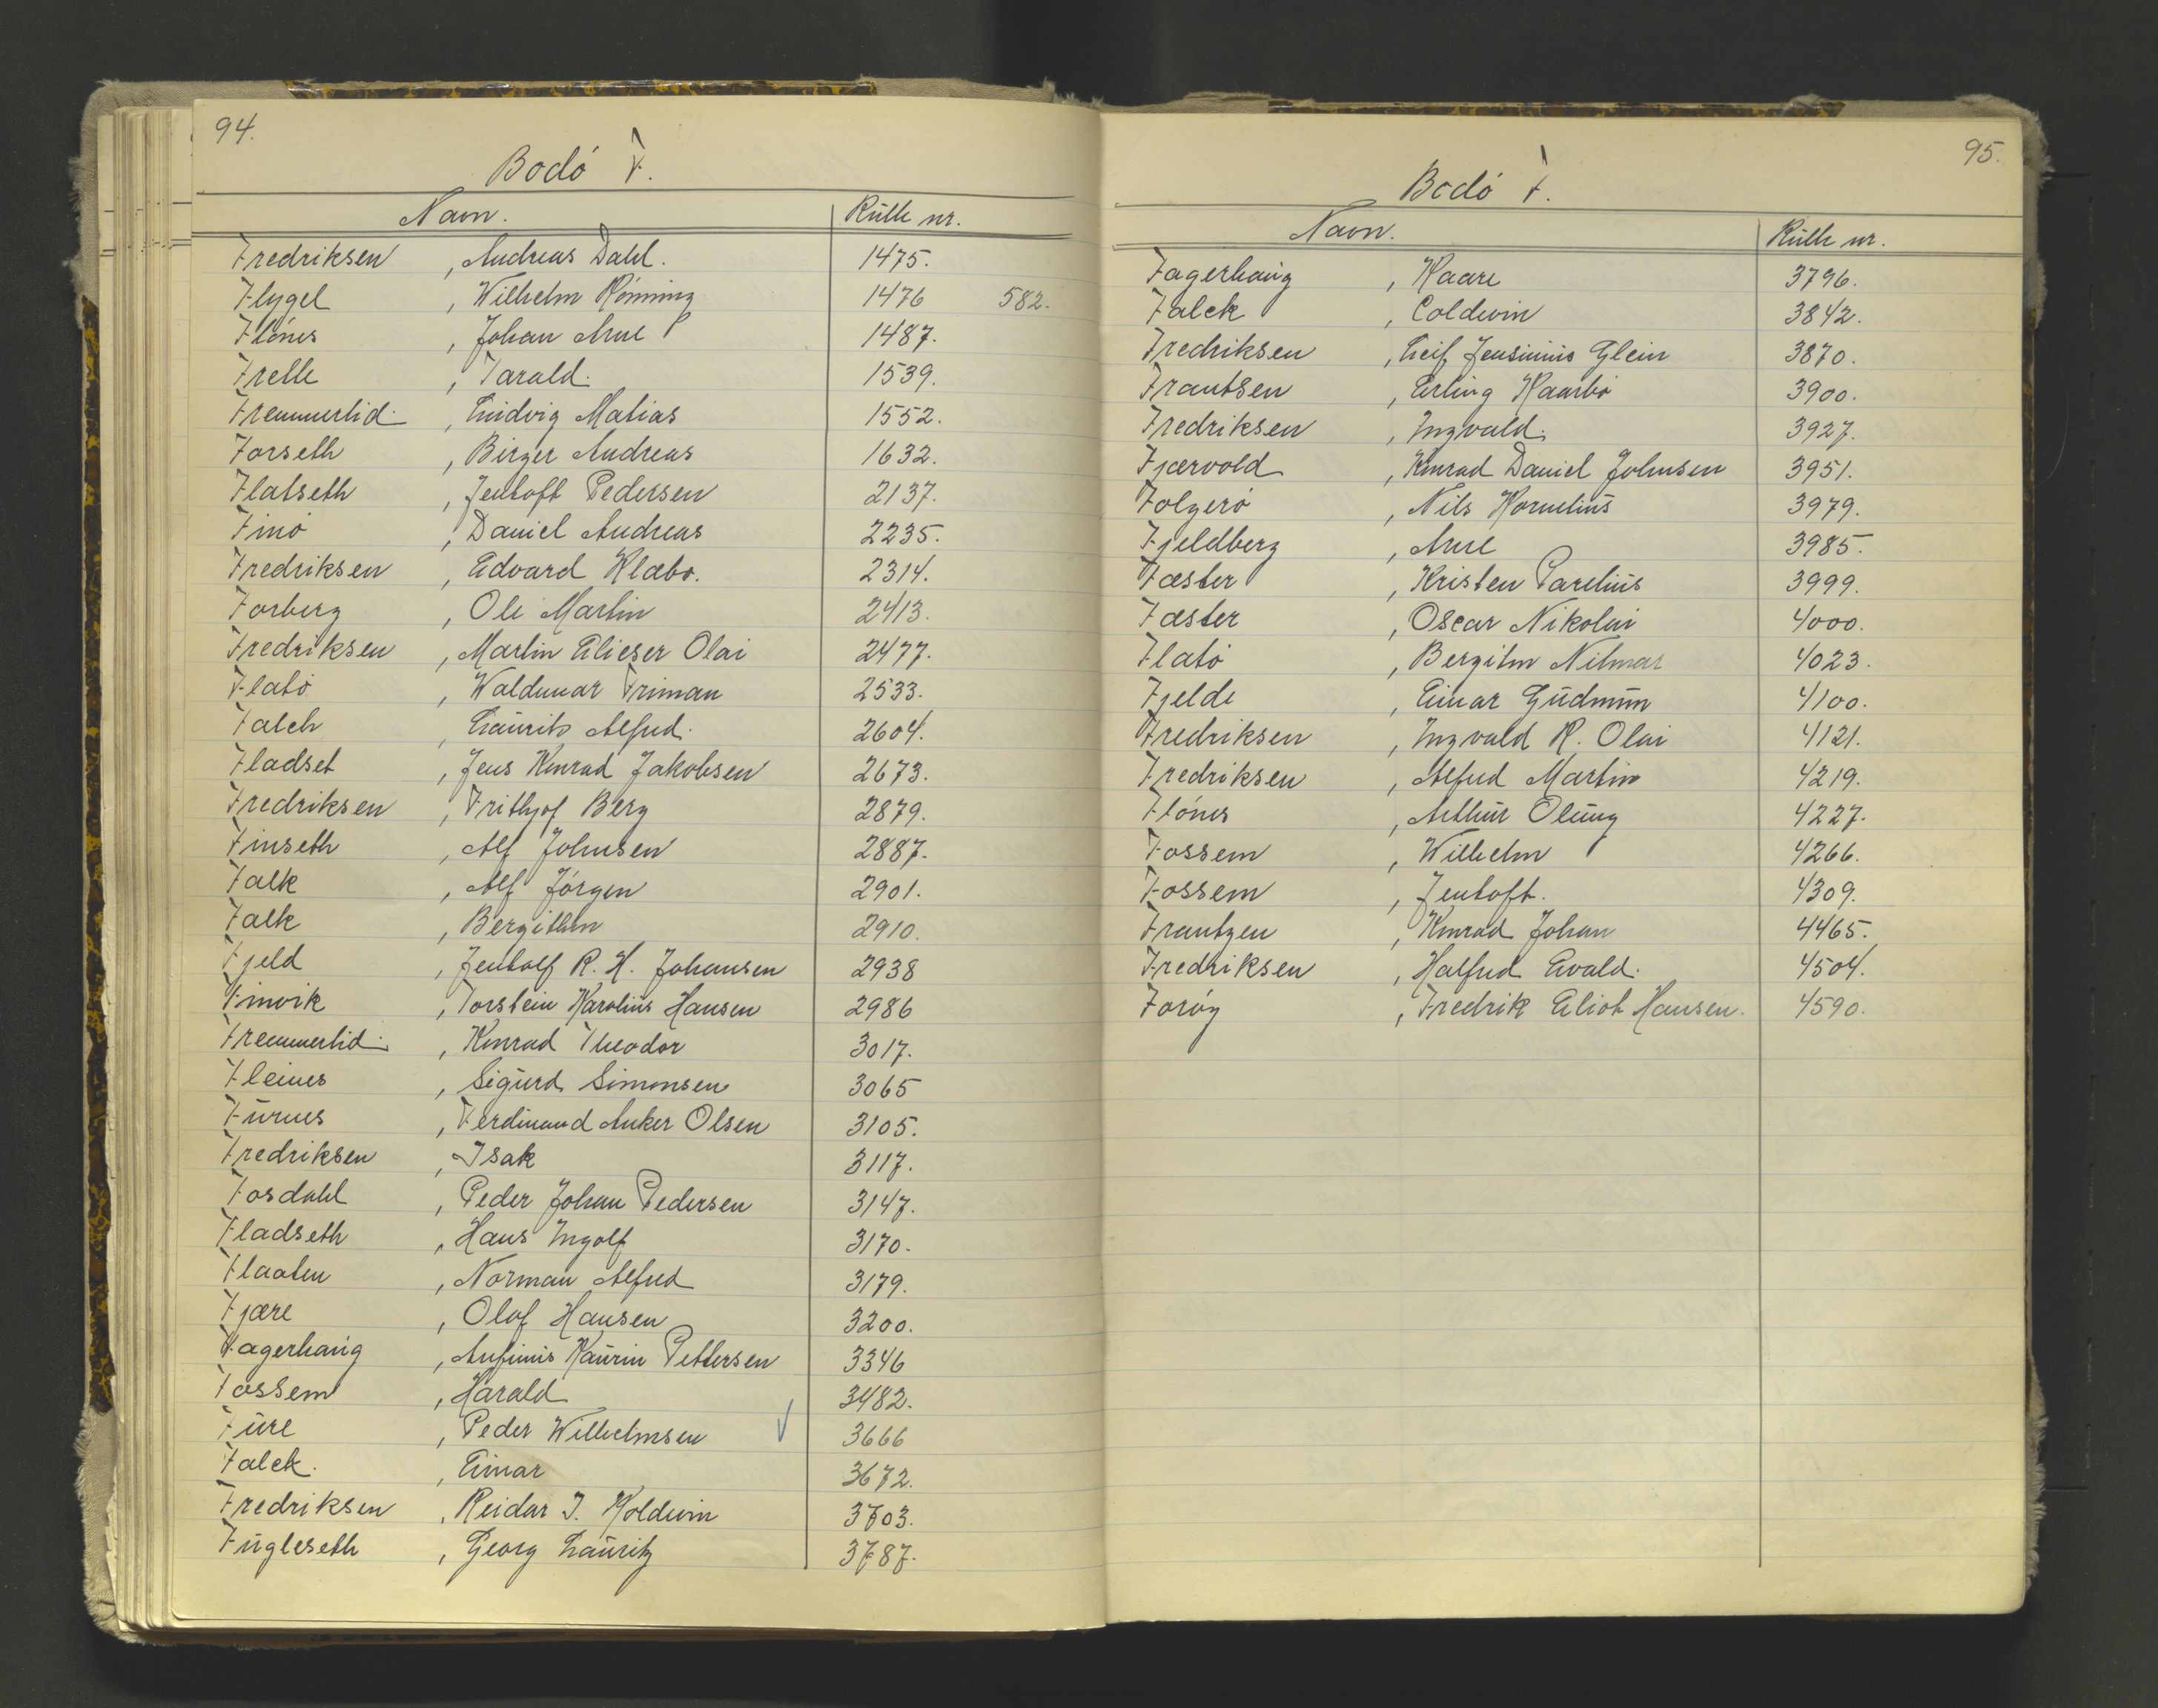 94.
Bodó F.
Navn. Rulle nr.
Fredriksen, Andreas Dahl. 1475.
Flygel, Wilhelm Rónning 1476 582.
Flónes, Johan Arne 1487.
Frelle, Tarald. 1539.
Fremmerlid., Ludvig Matias 1552.
Forseth, Birger Andreas 1632.
Flatseth, Jentoft Pedersen 2137.
Finó, Daniel Andreas 2235.
Fredriksen, Edvard Klæbo. 2314.
Forberg, Ole Martin 2413.
Fredriksen, Martin Elieser Olai 2477.
Flató, Waldemar Friman 2533.
Falch, Laurits Alfred. 2604.
Fladset, Jens Konrad Jakobsen 2673.
Fredriksen, Frithjof Berg 2879.
Finseth, Alf Johnsen 2887.
Falk, Alf Jórgen 2901.
Falk, Bergithon 2910.
Fjeld, Jentolf R. H. Johansen 2938
Finvik, Torstein Karolius Hansen 2986
Fremmerlid., Konrad Theodor 3017.
Fleines, Sigurd Simonsen 3065
Furnes, Ferdinand Anker Olsen 3105.
Fredriksen, Isak 3117.
Fosdahl, Peder Johan Pedersen 3147.
Fladseth, Hans Ingolf 3170.
Flaaten, Norman Alfred 3179.
Fjære, Olaf Hansen 3200.
Fagerhaug, Anfinnis Kaurin Pettersen 3346
Fossem, Harald 3482.
Fure, Peder Wilhelmsen ✓ 3666
Falck., Einar 3672.
Fredriksen, Reidar J. Koldevin 3703.
Fugleseth, Georg Lauritz 3787.
95.
Bodó F.
Navn. Rulle nr.
Fagerhaug, Kaare 3796.
Falck, Coldevin 3842.
Fredriksen, Leif Jensinius Glein 3870.
Frantsen, Erling Kaarbó 3900.
Fredriksen, Ingvald. 3927.
Fjærvold, Konrad Daniel Johnsen 3951.
Folgeró, Nils Kornelius 3979.
Fjeldberg, Arne 3985.
Fæster, Kristen Parelius 3999.
Fæster, Oscar Nikolai 4000.
Flató, Bergiton Nilmar 4023.
Fjelde, Einar Gudmun 4100.
Fredriksen, Ingvald R. Olai 4121.
Fredriksen, Alfred Martin 4219.
Flónes, Arthur Olung 4227.
Fossem, Wilhelm 4266.
Fossem, Jentoft. 4309.
Frantzen, Konrad Johan 4465.
Fredriksen, Halfred Evald. 4504.
Forøy, Fredrik Eliot Hansen. 4590.